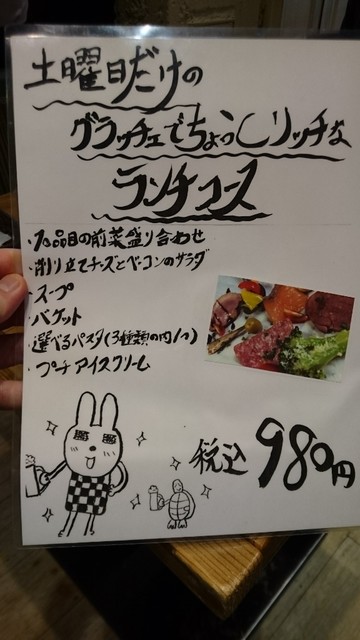 土曜日だけの
グラッチェでちょっとリッチな
ランチコース
・10品目の前菜盛り合わせ
・削り立てチーズとベーコンのサラダ
・スープ
・バゲット
・選べるパスタ(3種類の内1つ)
・プチアイスクリーム
税込980円